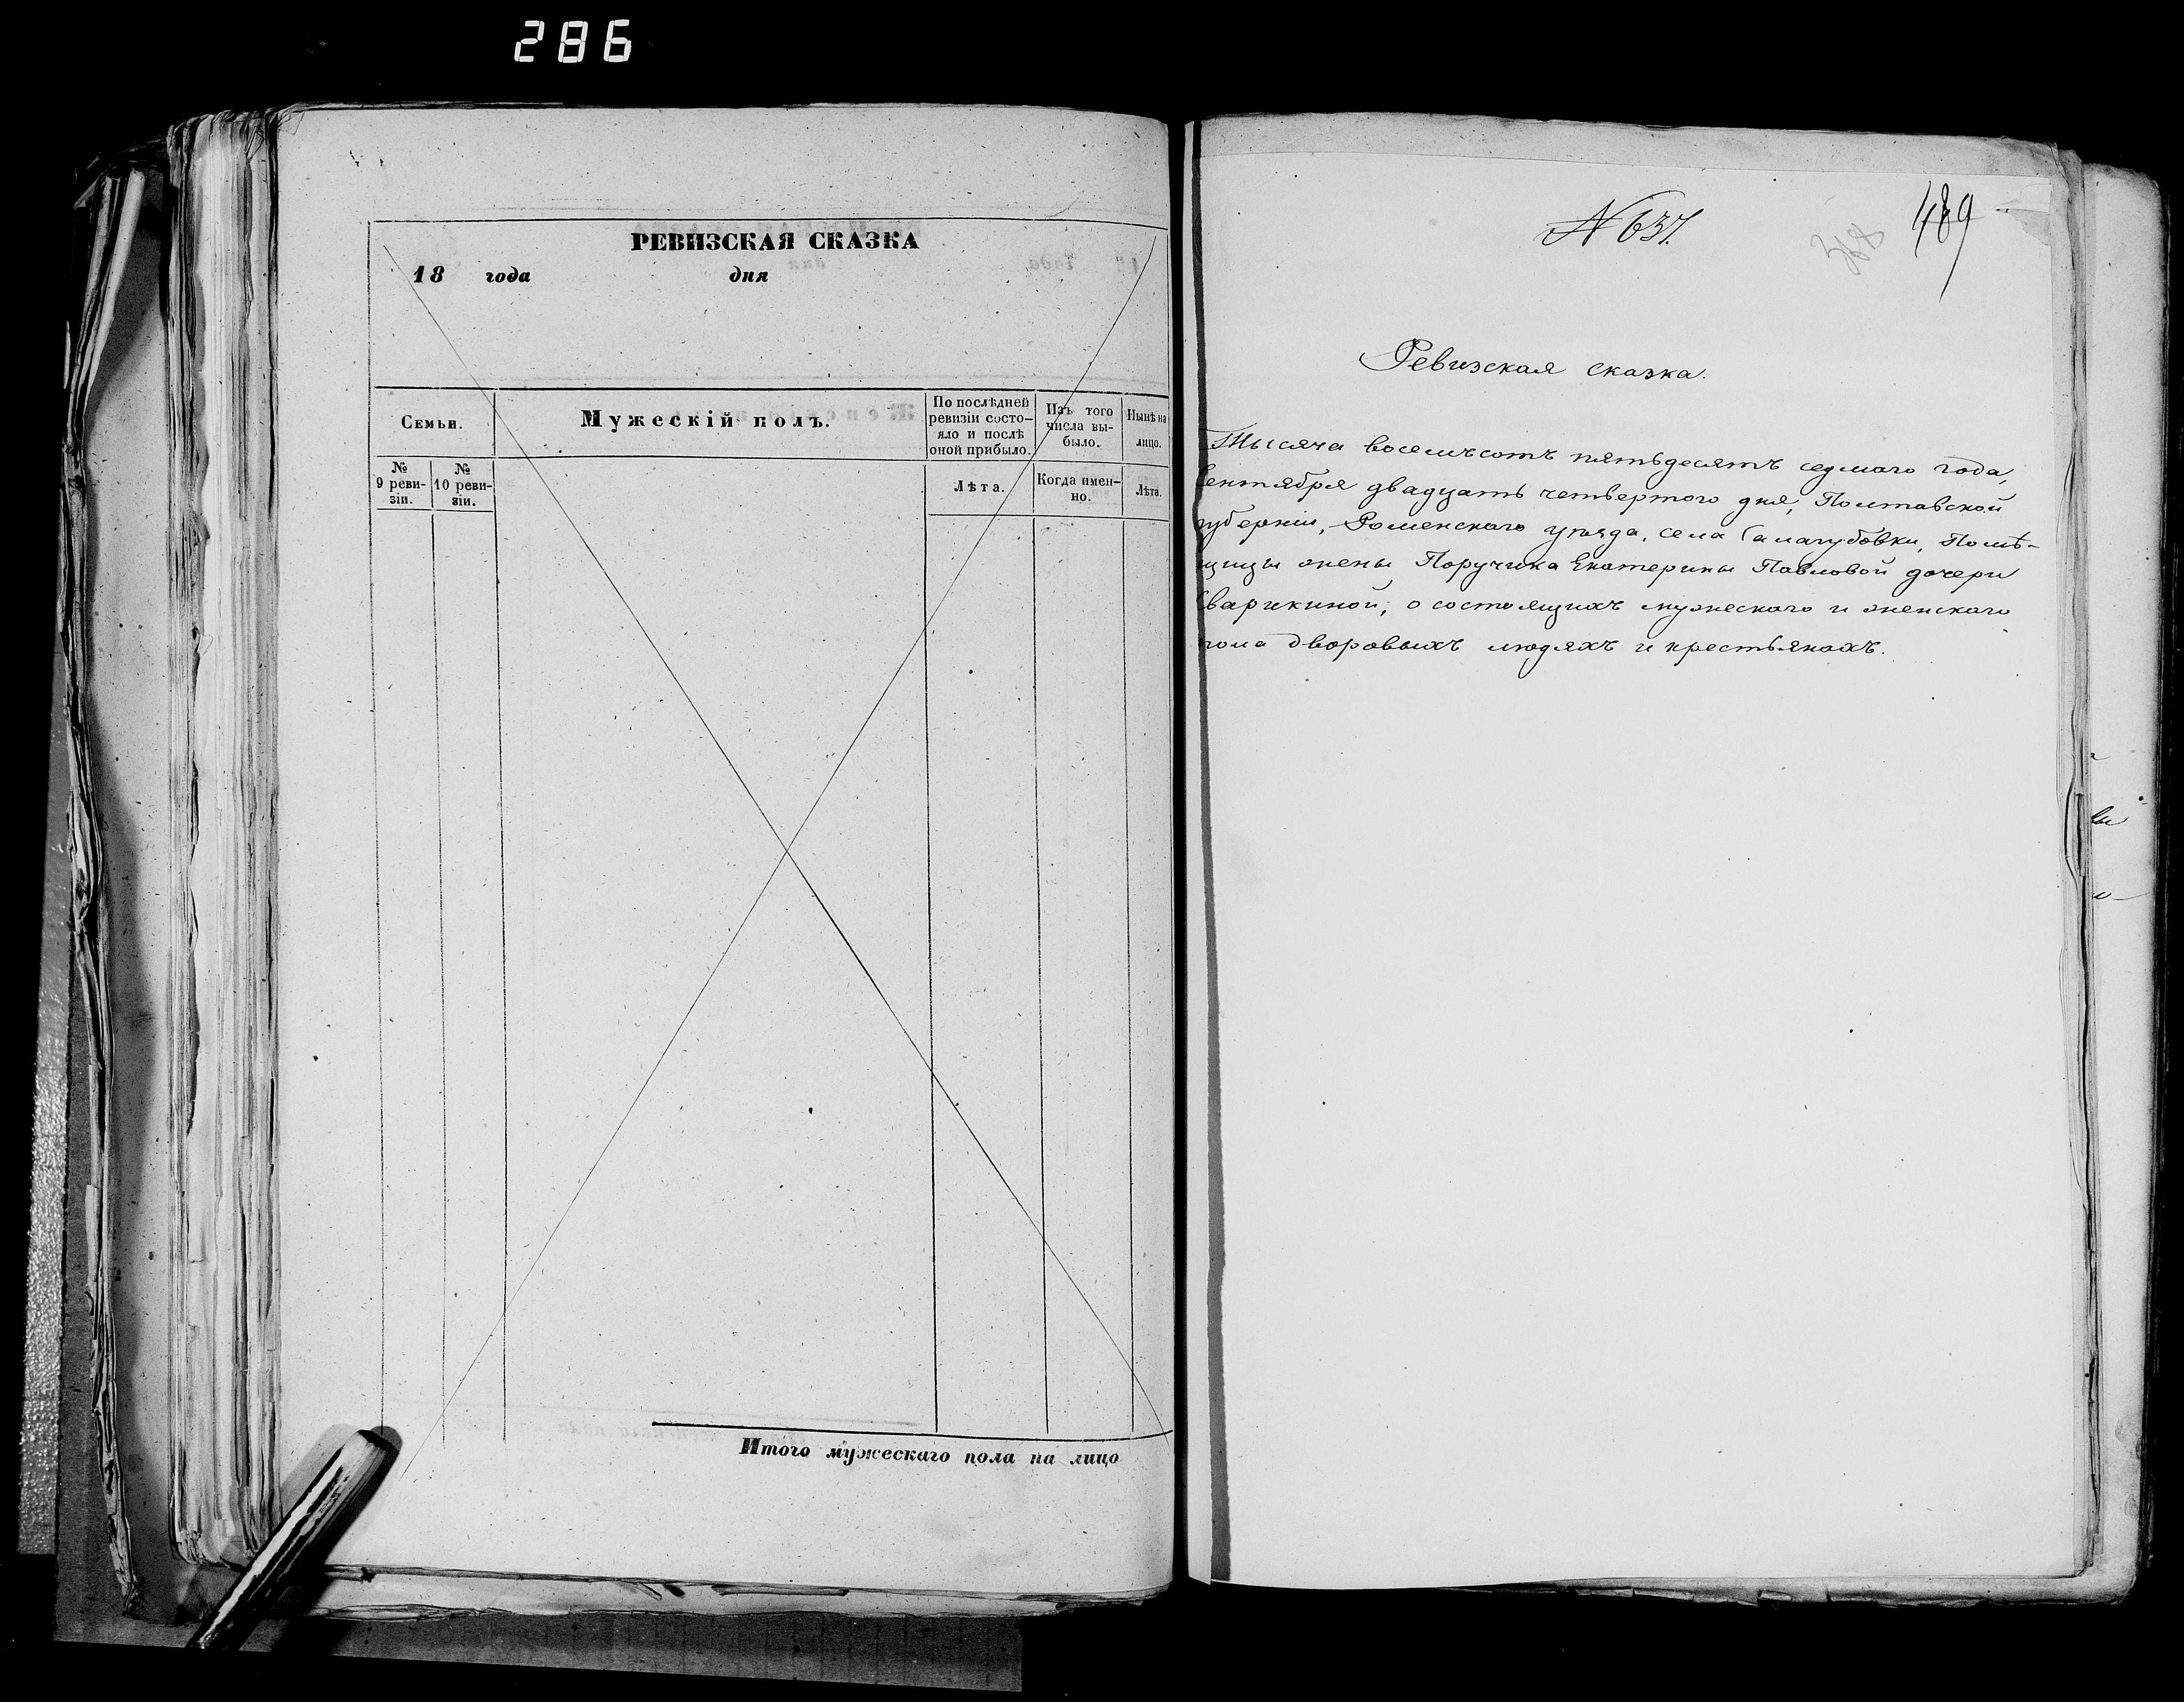 286
РЕВИЗСКАЯ СКАЗКА
18 года дня
Семьи.
Мужескій полъ.
По послѣдней
ревизіи состо-
яло и послѣ
оной прибыло.
Изъ того
числа вы-
было.
Нынѣ на
лицо.
№
9 реви-
зіи.
№
10 реви-
зіи.
Лѣта.
Когда имен-
но.
Лѣта.
Итого мужескаго пола на лицо
N 637.
489
Ревизская сказка.
Тысяча восемъсотъ пятьдесятъ седмаго года,
Сентября двадцать четвертого дня, Полтавской
губерніи, Роменскаго уѣзда, села Саластубовки, Помѣ-
щицы жены Поручика Екатерины Павловой дочери
о состоящихъ мужескаго и женскаго
пола дворовыхъ людяхъ и крестьянахъ.